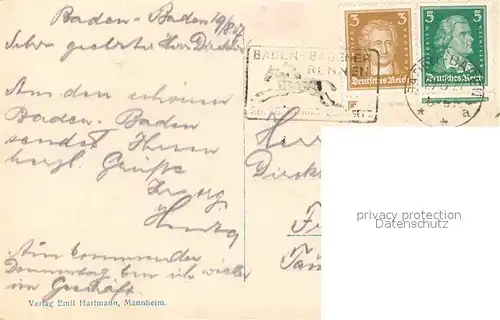 Baden-Baden 19/8 27
Sehr geehrter Herr Direktor
Aus dem schönen
Baden-Baden
sendet Ihnen
herzl. Grüße
Georg
Am kommenden
Donnerstag bin ich wieder
im Geschäft.
Verlag Emil Hartmann, Mannheim.
BADEN-BADENER
RENNEN
3 3
Deutsches Reich
5 5
FRIEDRICH
Deutsches Reich
BADEN
* * a
Herr
Direk
privacy protection
Datenschutz